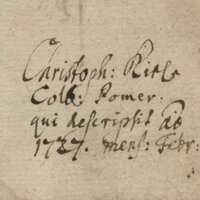 Christoph: Riese
Colb: Pomer:
qui descripsit ao
1727. mens: Febr: